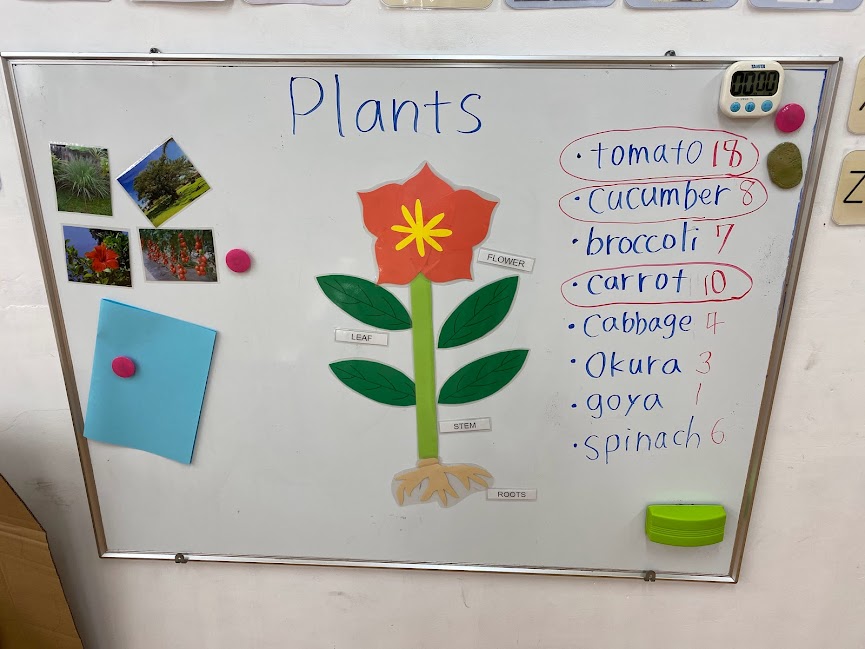 Plants
TANITA
00 00
FLOWER
LEAF
STEM
ROOTS
• tomato 18
• cucumber 8
• broccoli 7
• carrot 10
• cabbage 4
• Okura 3
• goya 1
• spinach 6
Z